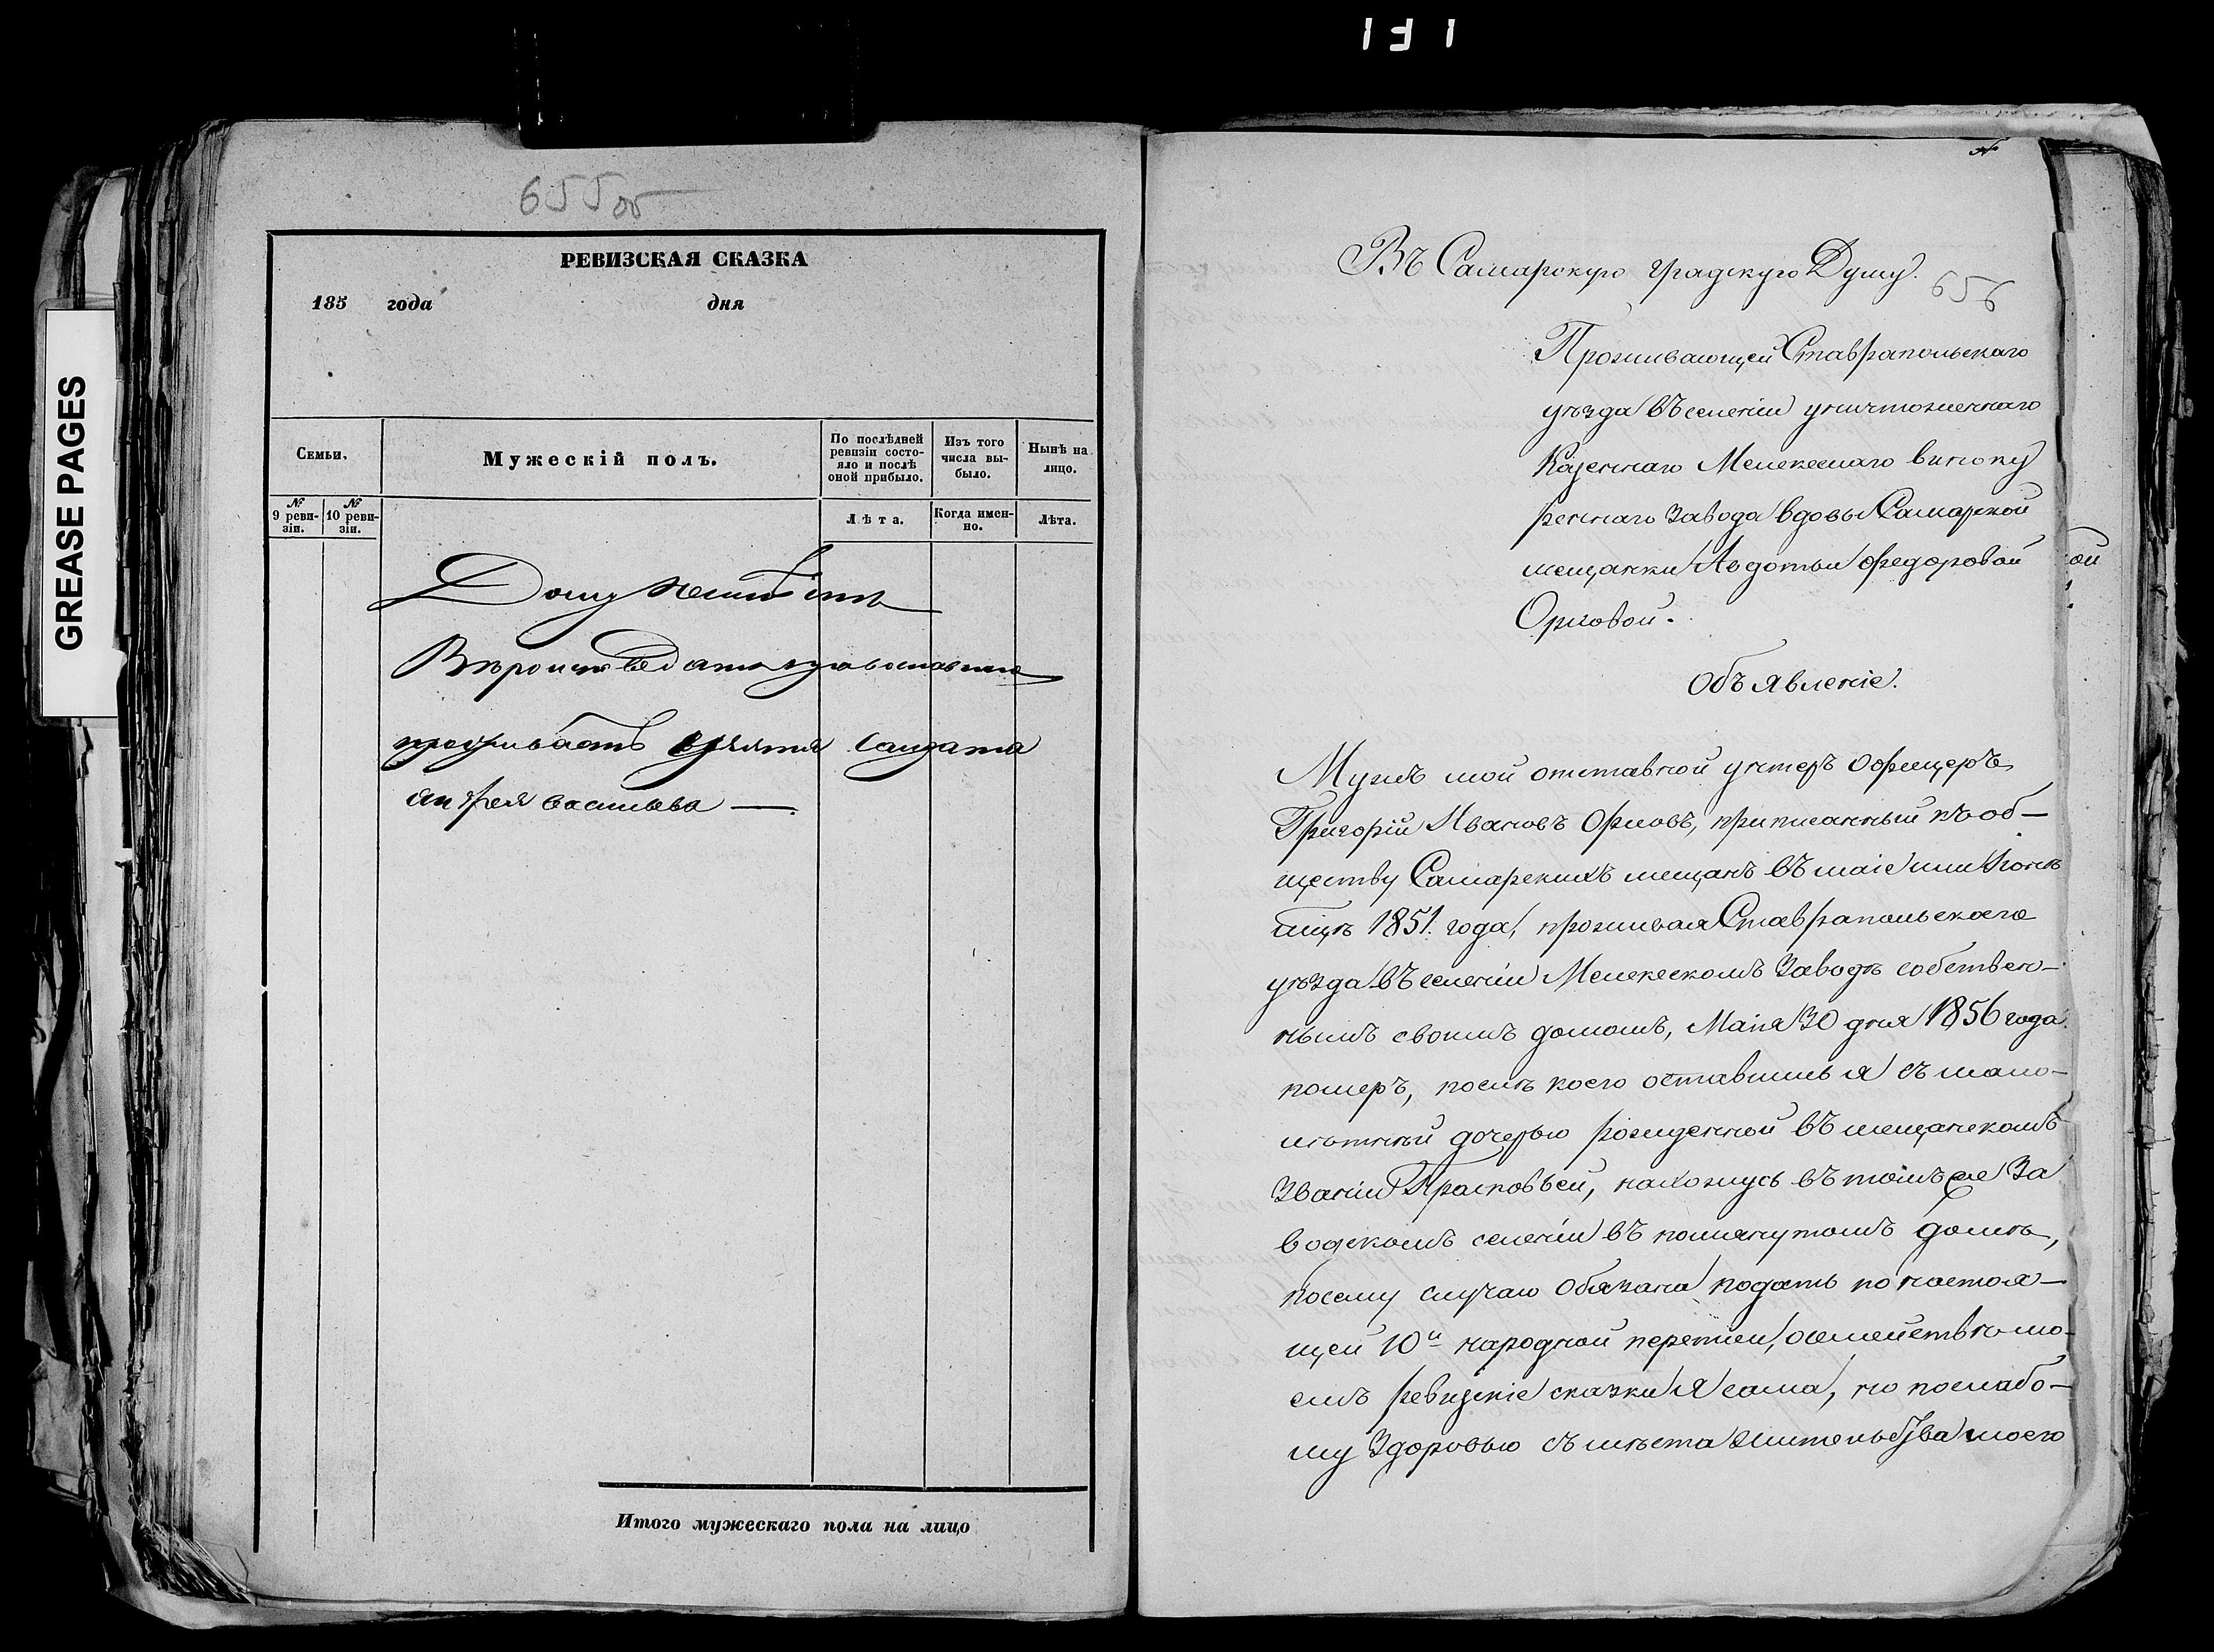 GREASE PAGES
655об
РЕВИЗСКАЯ СКАЗКА
185 года дня
Семьи.
Мужескій полъ.
По послѣдней ревизіи состояло и послѣ оной прибыло.
Изъ того числа выбыло.
Нынѣ на лицо.
№ 9 ревизіи.
№ 10 ревизіи.
Лѣта.
Когда именно.
Лѣта.
Дому
проживаетъ Солдата
Андрея Васильева —
Итого мужескаго пола на лицо
Въ Самарскую градскую Думу.
656
Проживающей Ставрапольскаго
уѣзда въ селеніи уничтоженнаго
Казеннаго Мелекескаго виноку
реннаго завода вдовы Самарской
мещанки Авдотьи Федоровой
Орловой.
Объявленіе.
Мужъ мой отставной унтеръ офицеръ
Григорій Ивановъ Орловъ, приписанный къ об—
ществу Самарскихъ мещанъ въ маіе или Іюнѣ
мцѣ 1851. года, проживая Ставрапольскаго
уѣзда въ селеніи Мелекескомъ Заводѣ собствен—
нымъ своимъ домомъ, Маія 30 дня 1856 года
померъ, послѣ коего оставшись я съ мало—
лѣтнѣй дочерью рожденной въ мещанскомъ
званіи Прасковьей, нахожусь въ томъ же За
водскомъ селеніи въ помянутомъ домѣ,
посему случаю обязана подать по настоя—
щей 10й народной переписи, о семействѣ мо-
емъ ревизскіе сказки я сама, но послабо—
му здоровью съ мѣста жительства моего